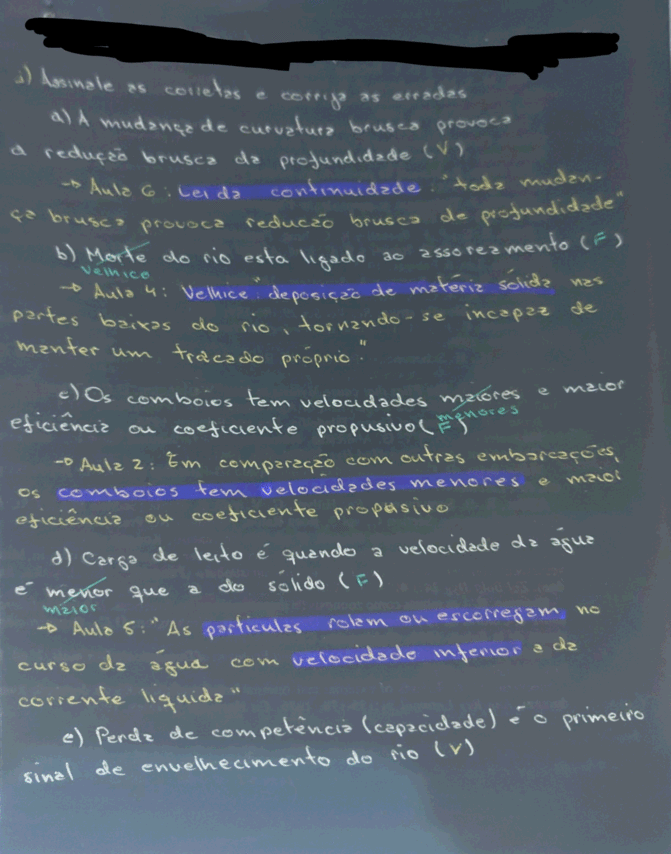 1) Assinale as corretas e corrija as erradas
a) A mudança de curvatura brusca provoca
a redução brusca da profundidade (V)
→ Aula 6: Lei da continuidade: "toda mudan-
ça brusca provoca redução brusca de profundidade"
b) Morte do rio esta ligado ao assoreamento (F)
Velhice
→ Aula 4: Velhice: "deposição de matéria sólida nas
partes baixas do rio, tornando-se incapaz de
manter um traçado próprio."
c) Os comboios tem velocidades maiores e maior
menores
eficiência ou coeficiente propusivo (F)
→ Aula 2: "Em comparação com outras embarcações,
os comboios tem velocidades menores e maior
eficiência ou coeficiente propusivo
d) Carga de leito é quando a velocidade da água
é menor que a do sólido (F)
maior
→ Aula 5: "As particulas rolam ou escorregam no
curso da água com velocidade inferior a da
corrente liquida"
e) Perda de competência (capacidade) é o primeiro
sinal de envelhecimento do rio (V)